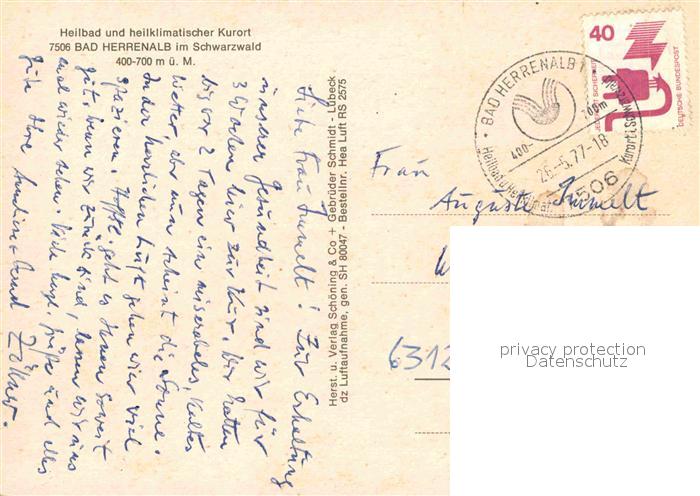 Heilbad und heilklimatischer Kurort
7506 BAD HERRENALB im Schwarzwald
400-700 m ü. M.
Liebe Frau Immelt! Zur Erhaltung
unserer Gesundheit sind wir für
3 Wochen hier zur Kur. Wir hatten
bis vor 2 Tagen ein miserables, kaltes
Wetter, aber nun scheint die Sonne.
In der herrlichen Luft gehen wir viel
spazieren. Hoffe, geht es Ihnen soweit
gut, wenn wir zurück sind, lassen wir uns
mal wieder sehen. Viele herzl. Grüße und alles
Gute Ihre
Zöllner.
Herst. u. Verlag Schöning & Co + Gebrüder Schmidt - Lübeck
dz Luftaufnahme, gen. SH 80047 - Bestellnr. Hea Luft RS 2575
40
JEDERZEIT SICHERHEIT
DEUTSCHE BUNDESPOST
BAD HERRENALB 1
400-700m
26.-5.77-18
7506
Frau
Auguste Immelt
W
6312
privacy protection
Datenschutz